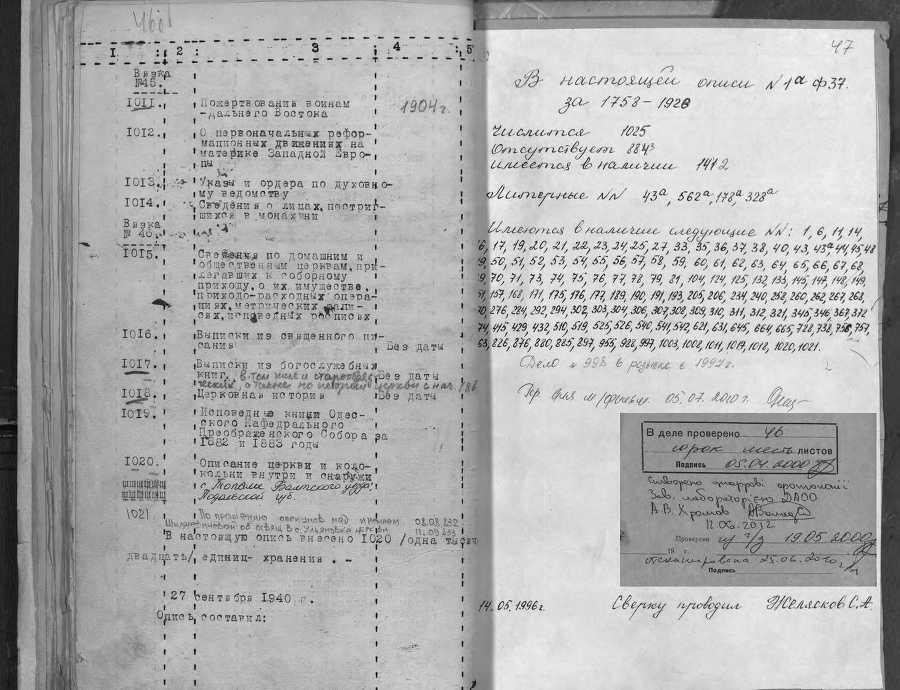 46об
1 : 2 : 3 4 5
Вязка
№45.
1011. Пожертвование воинам 1904г.
-дальнего Востока
1012. О первоначальных рефор-
мационных движениях на
материке Западной Евро-
пы
1013. Указы и ордера по духовно-
му ведомству
1014. Сведения о лицах, постриг-
шихся в монахини
Вязка
№ 46.
1015. Сведения по домашним и
общественным церквам, при-
легавших к соборному
приходу, о их имуществе,
приходо-расходных опера-
циях, метрических запи-
сях, исповедных росписях
1016. Выписки из священного пи-
сания Без даты
1017. Выписки из богослужебных
книг, Без даты
1018. Церковная история Без даты
1019. Исповедные книги Одес-
ского Кафедрального
Преображенского Собора за
1882 и 1883 годы
1020. Описание церкви и коло-
кольни внутри и снаружи
с. Балтского уезда,
Подольской губ.
1021. По прошению
В настоящую опись внесено 1020 /одна тысяч
двадцать/ единиц хранения . -
27 сентября 1940 г.
Опись составил:
47
В настоящей описи N 1а ф 37.
за 1758-1920
Числится 1025
Отсутствует 884
Имеются в наличии 141
Литерные NN 43а, 562а, 178а, 328а
Имеются в наличии следующие NN: 1, 6, 11, 14,
16, 17, 19, 20, 21, 22, 23, 24, 25, 27, 33, 35, 36, 37, 38, 40, 43, 43а, 44, 45, 48
50, 51, 52, 53, 54, 55, 56, 57, 58, 59, 60, 61, 62, 63, 64, 65, 66, 67, 68,
70, 71, 73, 74, 75, 76, 77, 78, 79, 81, 104, 124, 125, 132, 133, 145, 147, 148, 149,
157, 168, 171, 175, 176, 177, 189, 190, 191, 193, 205, 206, 234, 240, 252, 260, 262, 267, 268,
276, 284, 292, 294, 302, 303, 304, 306, 307, 308, 309, 310, 311, 312, 321, 345, 346, 367, 372
415, 429, 432, 510, 519, 525, 526, 540, 541, 542, 621, 631, 645, 664, 665, 728, 732, 757,
826, 876, 880, 885, 897, 955, 928, 997, 1003, 1008, 1011, 1019, 1012, 1020, 1021.
Дело N 998 в розыске с 1997 г.
05.07.2010 г.
В деле проверено 46
сорок шесть листов
Подпись 05.04.2000
Створено фонокопії
Зав. лабораторією ДАОО
А.В. Хромов
12.06.2012
Проверил 19.05.2000
19 г.
отсканирована 25.06.2010г.
Подпись
14.05.1996г. Сверку проводил Желясков С.А.